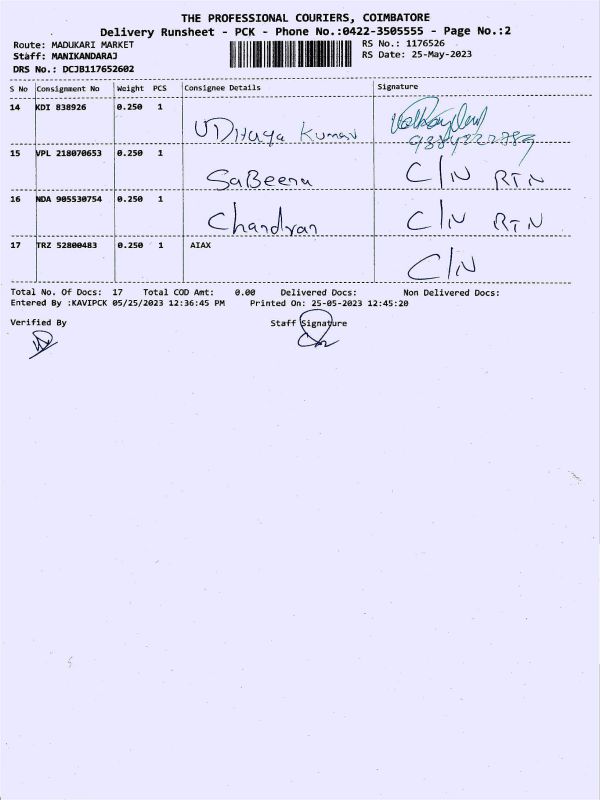 THE PROFESSIONAL COURIERS, COIMBATORE
Delivery Runsheet - PCK - Phone No.:0422-3505555 - Page No.:2
Route: MADUKARI MARKET RS No.: 1176526
Staff: MANIKANDARAJ RS Date: 25-May-2023
DRS No.: DCJB117652602
S No Consignment No Weight PCS Consignee Details Signature
14 KDI 838926 0.250 1
UDHaya Kumar
15 VPL 218070653 0.250 1
SaBeena C/N RTN
16 NDA 905530754 0.250 1
Chandran C/N RTN
17 TRZ 52800483 0.250 1 AIAX
C/N
Total No. Of Docs: 17 Total COD Amt: 0.00 Delivered Docs: Non Delivered Docs:
Entered By :KAVIPCK 05/25/2023 12:36:45 PM Printed On: 25-05-2023 12:45:20
Verified By Staff Signature